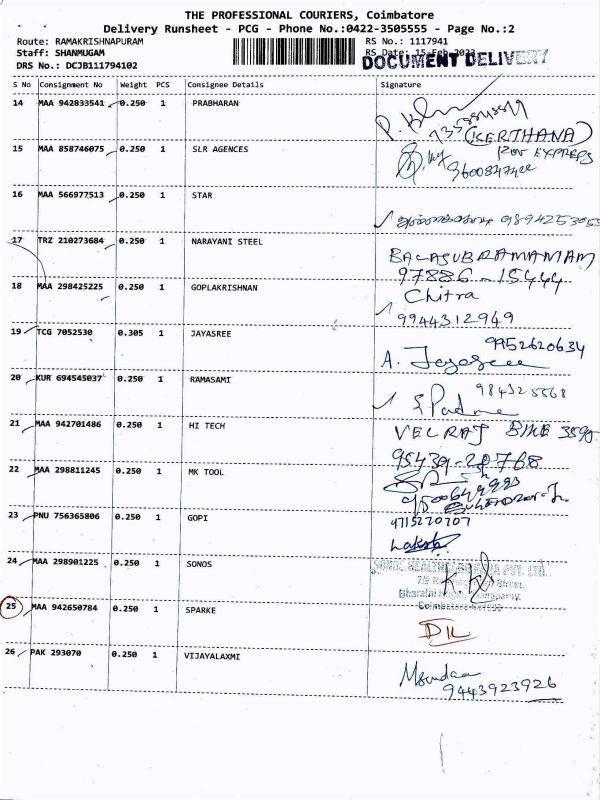 THE PROFESSIONAL COURIERS, Coimbatore
Delivery Runsheet - PCG - Phone No.:0422-3505555 - Page No.:2
Route: RAMAKRISHNAPURAM RS No.: 1117941
Staff: SHANMUGAM RS Date: 15-Feb-2023
DRS No.: DCJB111794102 DOCUMENT DELIVERY
S No Consignment No Weight PCS Consignee Details Signature
14 MAA 942833541 0.250 1 PRABHARAN
(KERTHANA)
15 MAA 858746075 0.250 1 SLR AGENCES
EXPRESS
16 MAA 566977513 0.250 1 STAR
17 TRZ 210273684 0.250 1 NARAYANI STEEL
BALASUBRAMANIAM
97886-15444
18 MAA 298425225 0.250 1 GOPLAKRISHNAN
Chitra
9944312949
19 TCG 7052530 0.305 1 JAYASREE
9952620634
A. Jayasree
20 KUR 694545037 0.250 1 RAMASAMI
S. Padma
21 MAA 942701486 0.250 1 HI TECH
VELRAJ
95439-20768
22 MAA 298811245 0.250 1 MK TOOL
23 PNU 756365806 0.250 1 GOPI
9715270707
24 MAA 298901225 0.250 1 SONOS
PVT. LTD.
Street,
Bharathi
Coimbatore
25 MAA 942650784 0.250 1 SPARKE
DIL
26 PAK 293070 0.250 1 VIJAYALAXMI
9443923926